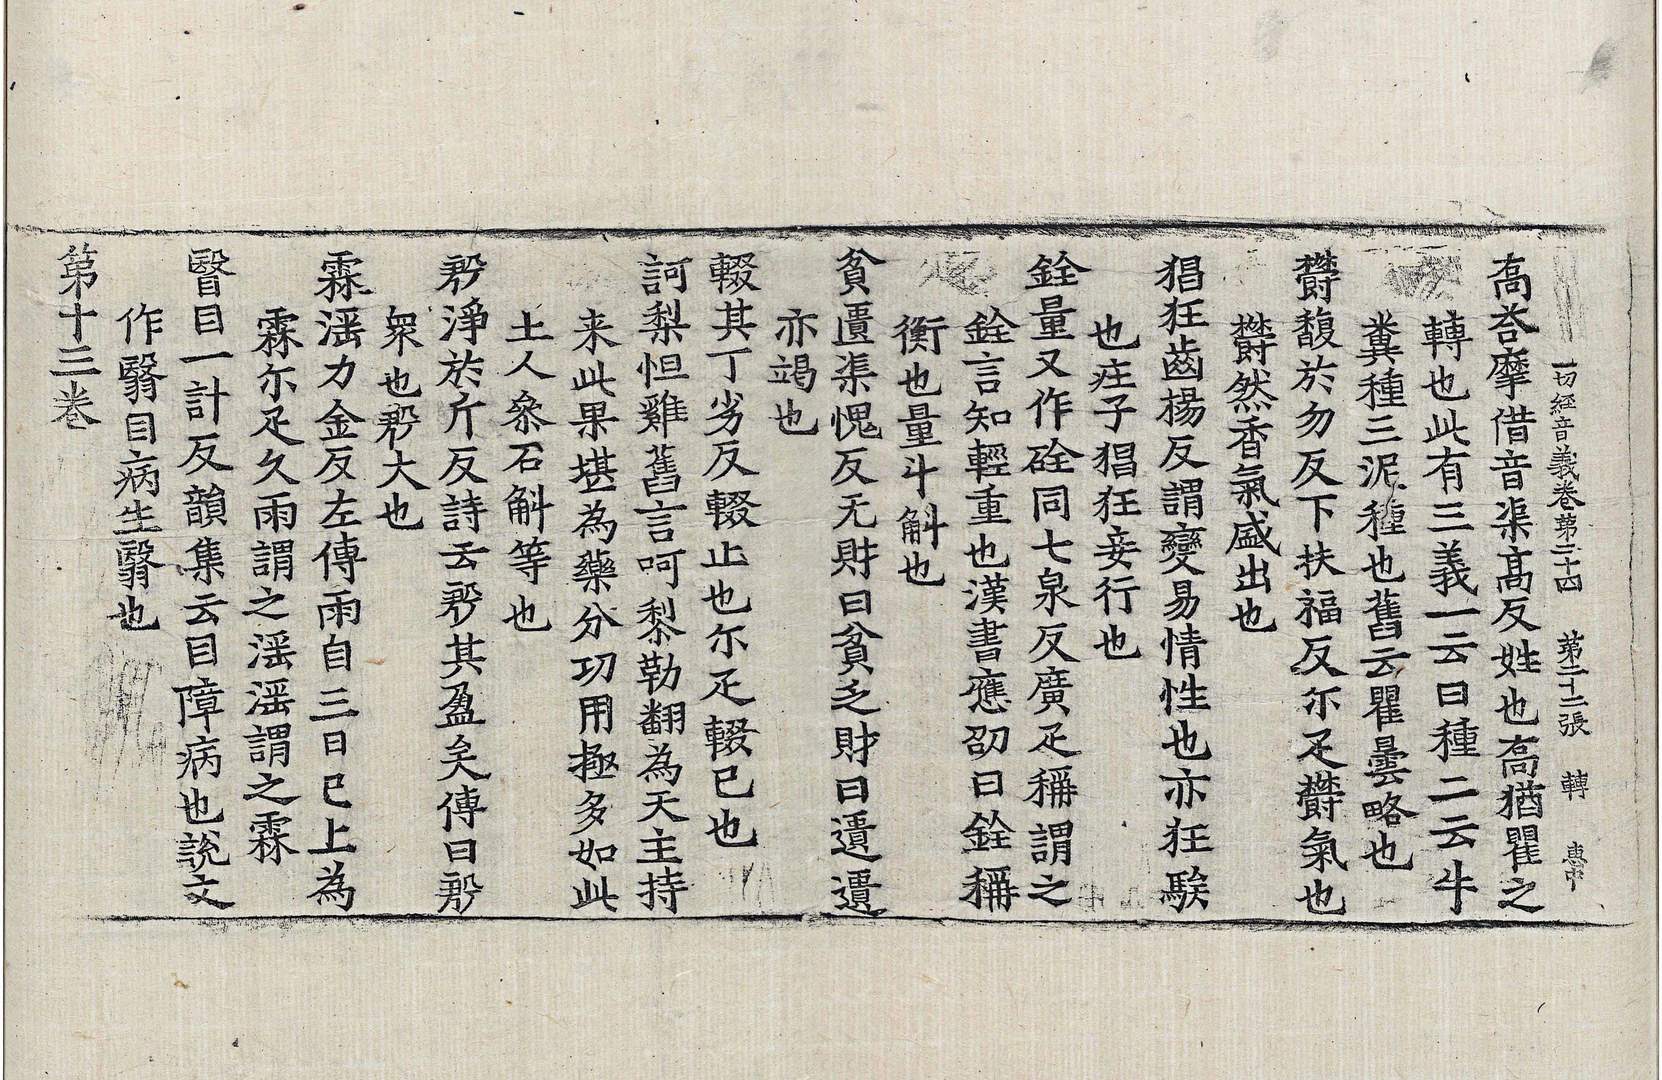 一切經音義卷第二十四 第二十二張 轉 惠中
高荅摩借音渠高反姓也高猶瞿之
轉也此有三義一云日種二云牛
糞種三泥種也舊云瞿曇略也
欝馥於勿反下扶福反尓疋欝氣也
欝然香氣盛出也
猖狂齒楊反謂變易情性也亦狂騃
也庄子猖狂妄行也
銓量又作硂同七泉反廣疋稱謂之
銓言知輕重也漢書應劭曰銓稱
衡也量斗斛也
貧匱渠愧反无財曰貧乏財曰遺遺
亦竭也
輟其丁劣反輟止也尓疋輟已也
訶梨怛雞舊言呵黎勒翻為天主持
来此果堪為藥分功用極多如此
土人叅石斛等也
郣淨於斤反詩云郣其盈矣傳曰郣
衆也郣大也
霖滛力金反左傳雨自三日已上為
霖尓疋久雨謂之滛滛謂之霖
瞖目一計反韻集云目障病也說文
作翳目病生翳也
第十三卷